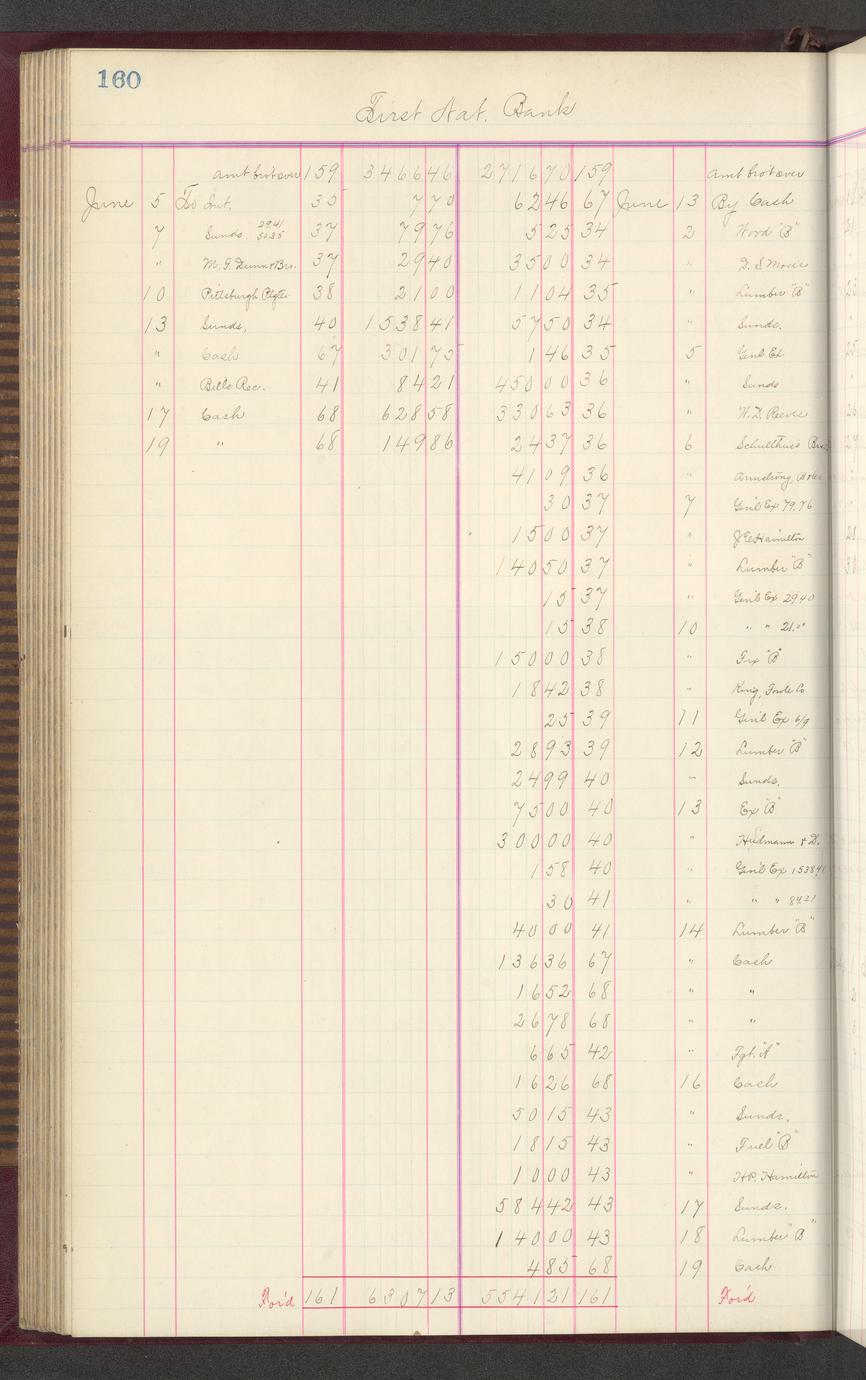 160
First Nat. Bank
amt bro't over 159 3466 46 2716 70 159 amt bro't over
June 5 To Int. 35 7 70 62 46 67 June 13 By Cash
7 Sunds. 37 79 76 5 25 34 2 Wood "B"
" M. G. Dunn & Bro. 37 29 40 35 00 34 " D. S. Morse
10 Pittsburgh 38 21 00 11 04 35 " Lumber "B"
13 Sunds. 40 1538 41 57 50 34 " Sunds.
" Cash 67 301 75 1 46 35 5 Gen'l Ex
" Bills Rec. 41 84 21 450 00 36 " Sunds
17 Cash 68 628 58 330 63 36 " W. D. Reeves
19 " 68 149 86 24 37 36 6 Schulthuis Bros
41 09 36 " Armstrong,
30 37 7 Gen'l Ex 79.76
15 00 37 " J E Hamilton
140 50 37 " Lumber "B"
15 37 " Gen'l Ex 29.40
15 38 10 " " 21.00
150 00 38 " Frx "B"
18 42 38 " King, Fowle Co
25 39 11 Gen'l Ex 6/9
28 93 39 12 Lumber "B"
24 99 40 " Sunds.
75 00 40 13 Ex "B"
300 00 40 " & D.
1 58 40 " Gen'l Ex 1538.41
30 41 " " " 84.21
40 00 41 14 Lumber "B"
136 36 67 " Cash
16 52 68 " "
26 78 68 " "
6 65 42 " Fgt. "A"
16 26 68 16 Cash
50 15 43 " Sunds.
18 15 43 " Fuel "B"
10 00 43 " H. P. Hamilton
584 42 43 17 Sunds.
140 00 43 18 Lumber "B"
4 85 68 19 Cash
For'd 161 6307 13 5541 21 161 For'd